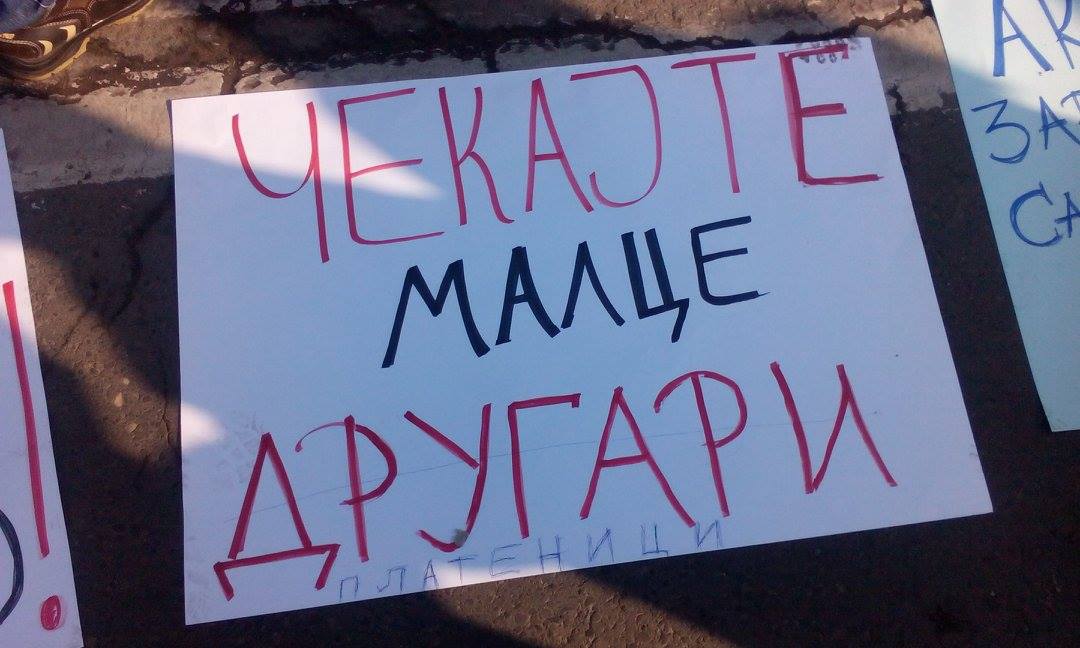 ЧЕКАЈТЕ
МАЛЦЕ
ДРУГАРИ
ПЛАТЕНИЦИ
!